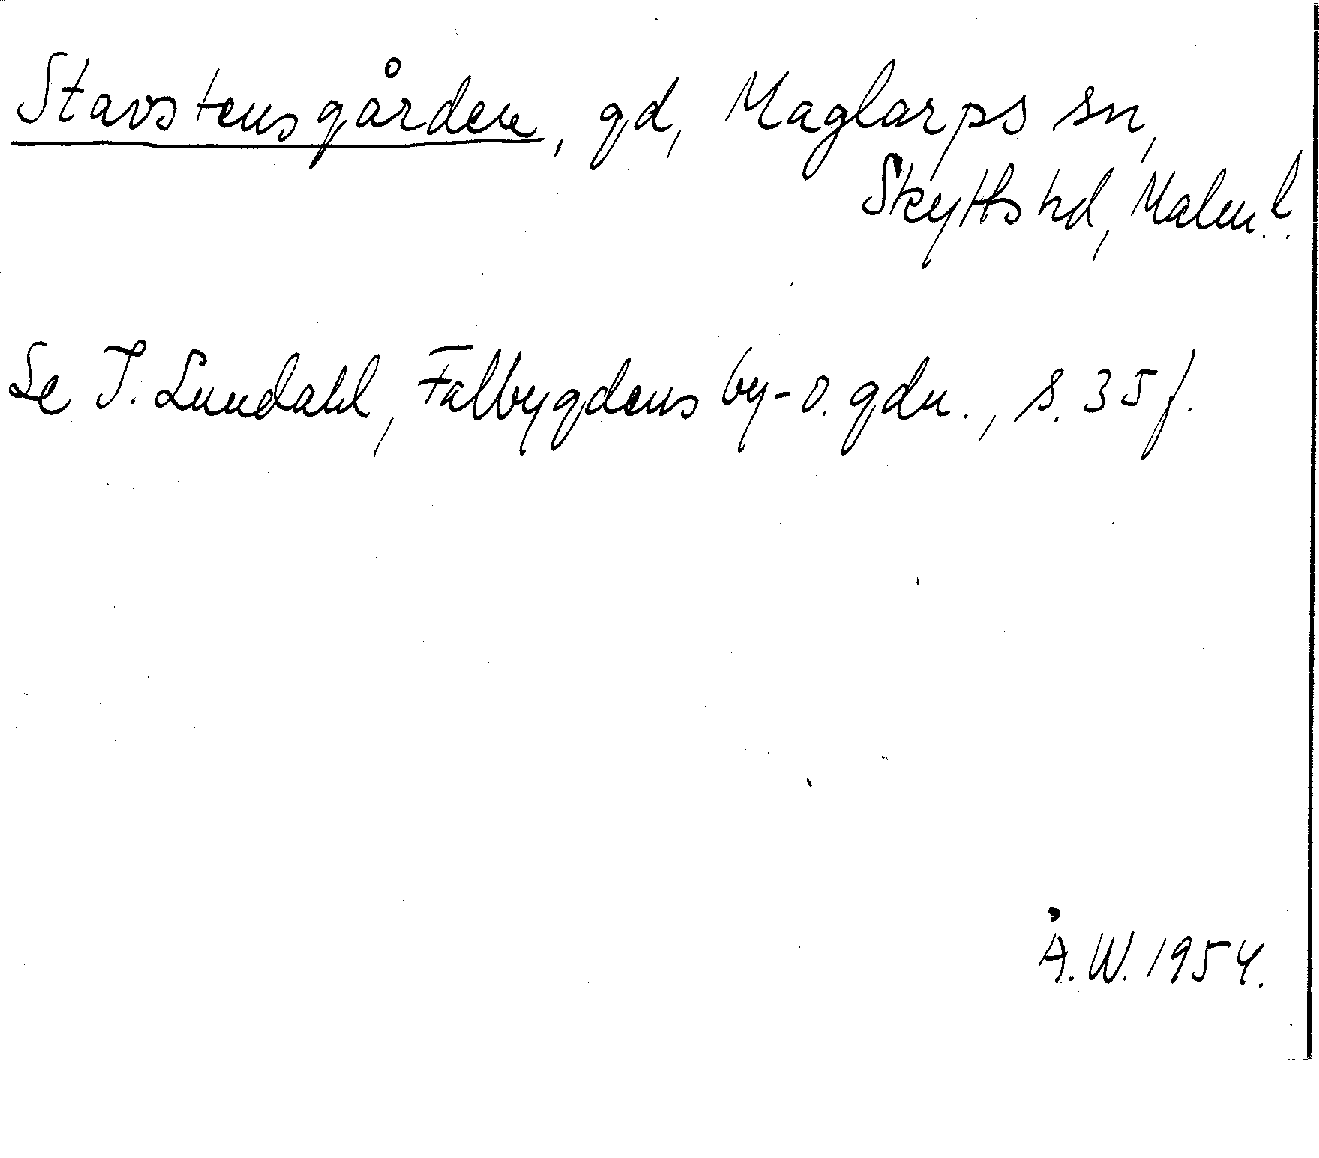 Stavstensgården, gd, Maglarps sn,
Skytts hd, Malm.l.
Se I. Lundahl, Falbygdens by- o. gdn., s. 35 f.
Å.W. 1954.